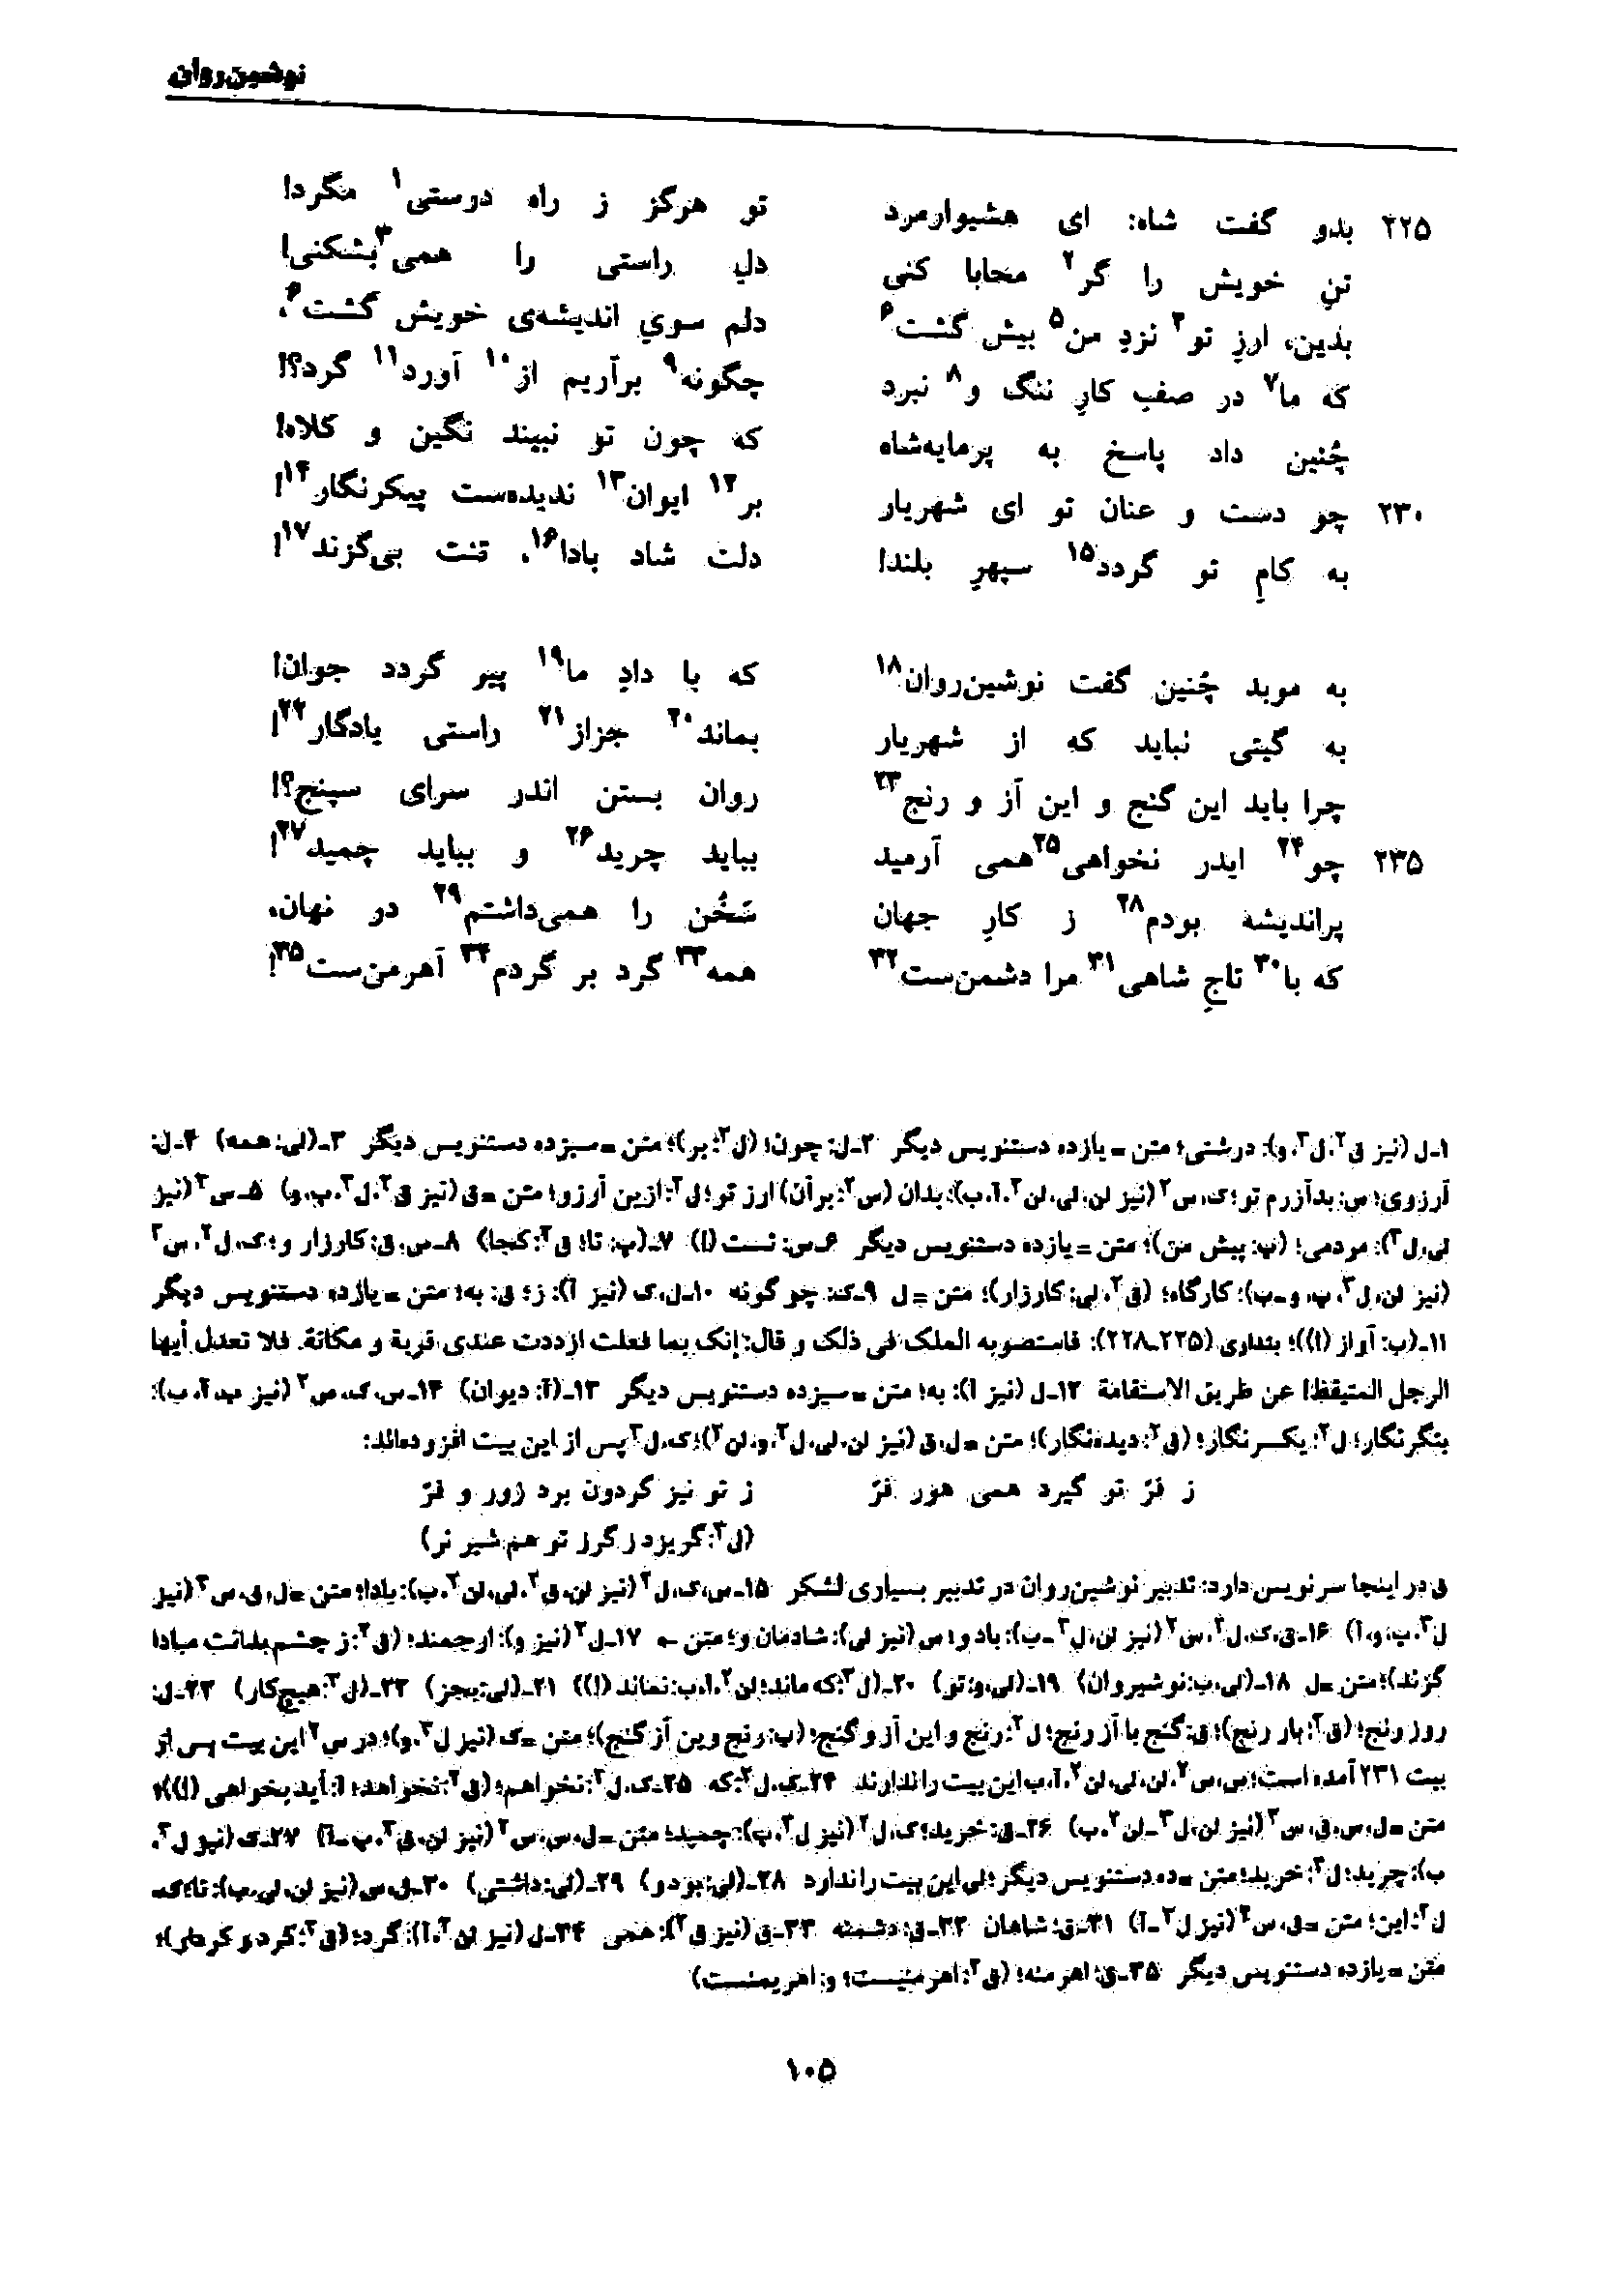 نوشین‌روان
۲۲۵ بدو گفت شاه: ای هشیوارمرد تو هرگز ز راه درستی۱ مگرد!
تنِ خویش را گر۲ محابا کنی دلِ راستی را همی۳ بشکنی!
بدین، ارزِ تو۴ نزدِ من۵ بیش گشت۶ دلم سویِ اندیشه‌ی خویش گشت۶،
که ما۷ در صفِ کارِ ننگ و۸ نبرد چگونه۹ برآریم از۱۰ آورد۱۱ گرد؟!
چُنین داد پاسخ به پرمایه‌شاه که چون تو نبیند نگین و کلاه!
۲۳۰ چو دست و عنان تو ای شهریار بر۱۲ ایوان۱۳ ندیده‌ست پیکرنگار۱۴!
به کامِ تو گردد۱۵ سپهرِ بلند! دلت شاد بادا۱۶، تنت بی‌گزند۱۷!
به موبد چُنین گفت نوشین‌روان۱۸ که با دادِ ما۱۹ پیر گردد جوان!
به گیتی نباید که از شهریار بماند۲۰ جزاز۲۱ راستی یادگار۲۲!
چرا باید این گنج و این آز و رنج۲۳ روان بستن اندر سرای سپنج؟!
۲۳۵ چو۲۴ ایدر نخواهی۲۵ همی آرمید بباید چرید۲۶ و بباید چمید۲۷!
پراندیشه بودم۲۸ ز کارِ جهان سَخُن را همی‌داشتم۲۹ در نهان،
که با۳۰ تاجِ شاهی۳۱ مرا دشمن‌ست۳۲ همه۳۳ گرد بر گردم۳۴ آهرمن‌ست۳۵!
۱ـ ل (نیز ق۲، ل۳، و): درشتی؛ متن = یازده دستنویس دیگر ۲ـ ل: چون؛ (ل۲: بر)؛ متن = سیزده دستنویس دیگر ۳ـ (لی: همه) ۴ـ ل:
آرزوی؛ س: بدآزرم تو؛ ک، س۲ (نیز لن، لی، لن۲، آ، ب): بدان (س۲: برآن) ارز تو؛ ل۲: ازین آرزو؛ متن = ق (نیز ق۲، ل۳، پ، و) ۵ـ س۲ (نیز
لی، ل۳): مردمی؛ (پ: پیش من)؛ متن = یازده دستنویس دیگر ۶ـ س: تست (!) ۷ـ (پ: تا؛ ق۲: کجا) ۸ـ س، ق: کارزار و؛ ک، ل۲، س۲
(نیز لن، ل۳، پ، و ـ ب): کارگاه؛ (ق۲، لی: کارزار)؛ متن = ل ۹ـ ک: چو گونه ۱۰ـ ل، ک (نیز آ): ز؛ ق: به؛ متن = یازده دستنویس دیگر
۱۱ـ (ب: آواز (!))؛ بنداری (۲۲۵ـ۲۲۸): فاستصوبه الملک فی ذلک و قال: إنک بما فعلت ازددت عندی قربة و مکانة. فلا تعدل أیها
الرجل المتیقظ! عن طریق الاستقامة ۱۲ـ ل (نیز آ): به؛ متن = سیزده دستنویس دیگر ۱۳ـ (آ: دیوان) ۱۴ـ س، ک، س۲ (نیز پ، آ، ب):
بتگرنگار؛ ل۲: یکسرنگار؛ (ق۲: دیده‌نگار)؛ متن = ل، ق (نیز لن، لی، ل۳، و، لن۲)؛ ک، ل۲ پس از این بیت افزوده‌اند:
ز فرّ تو گیرد همی هور فرّ ز تو نیز گردون برد زور و فرّ
(ل۲: گریزد ز گرز تو هم شیر نر)
ق در اینجا سرنویس دارد: تدبیر نوشین‌روان در تدبیر بسیاری لشکر ۱۵ـ س، ک، ل۲ (نیز لن، ق۲، لی، لن۲، ب): بادا؛ متن = ل، ق، س۲ (نیز
ل۳، پ، و، آ) ۱۶ـ ق، ک، ل۲، س۲ (نیز لن، ل۳ ـ ب): باد و؛ س (نیز لی): شادمان و؛ متن ← ۱۷ـ ل۲ (نیز و): ارجمند؛ (ق۲: ز چشم بدانت مبادا
گزند)؛ متن = ل ۱۸ـ (لی، ب: نوشیروان) ۱۹ـ (لی، و: تو) ۲۰ـ (ل۳: که ماند؛ لن۲، آ، ب: نماند (!)) ۲۱ـ (لی: بجز) ۲۲ـ (ل۳: هیچ کار) ۲۳ـ ل:
روز رنج؛ (ق۲: بار رنج)؛ ق: گنج با آز رنج؛ ل۲: رنج و این آز و گنج؛ (پ: رنج وین آز گنج)؛ متن = ک (نیز ل۳، و)؛ در س۲ این بیت پس از
بیت ۲۳۱ آمده است؛ س، س۲، لن، لی، لن۲، آ، ب این بیت را ندارند ۲۴ـ ک، ل۲: که ۲۵ـ ک، ل۲: نخواهم؛ (ق۲: نخواهد؛ آ: آید بخواهی (!))؛
متن = ل، س، ق، س۲ (نیز لن، ل۳ ـ لن۲، ب) ۲۶ـ ق: خرید؛ ک، ل۲ (نیز ل۳، ب): چمید؛ متن = ل، س، س۲ (نیز لن، ق۲، پ ـ آ) ۲۷ـ ک (نیز ل۳،
ب): چرید؛ ل۲: خرید؛ متن = ده دستنویس دیگر؛ لی این بیت را ندارد ۲۸ـ (لی: بود و) ۲۹ـ (لی: داشتی) ۳۰ـ ل، س (نیز لن، لی، ب): تا؛ ک،
ل۲: این؛ متن = ق، س۲ (نیز ل۳ ـ آ) ۳۱ـ ق: شاهان ۳۲ـ ق: دشمنه ۳۳ـ ق (نیز ق۲): همی ۳۴ـ ل (نیز لن۲، آ): گرد؛ (ق۲: گرد و کردار)؛
متن = یازده دستنویس دیگر ۳۵ـ ق: اهرمنه؛ (ق۲: اهرمنیست؛ و: اهریمنست)
۱۰۵